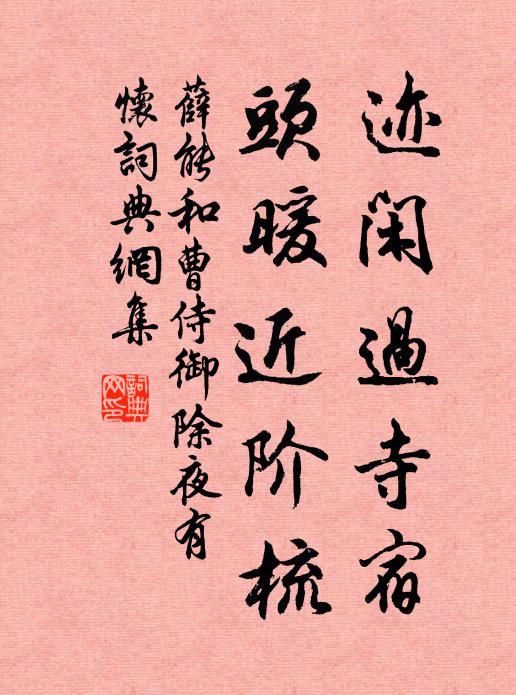 迹闲過寺宿
頭暖近阶梳
薛能和曹侍御除夜有
懷詞典網集
詞典
网印